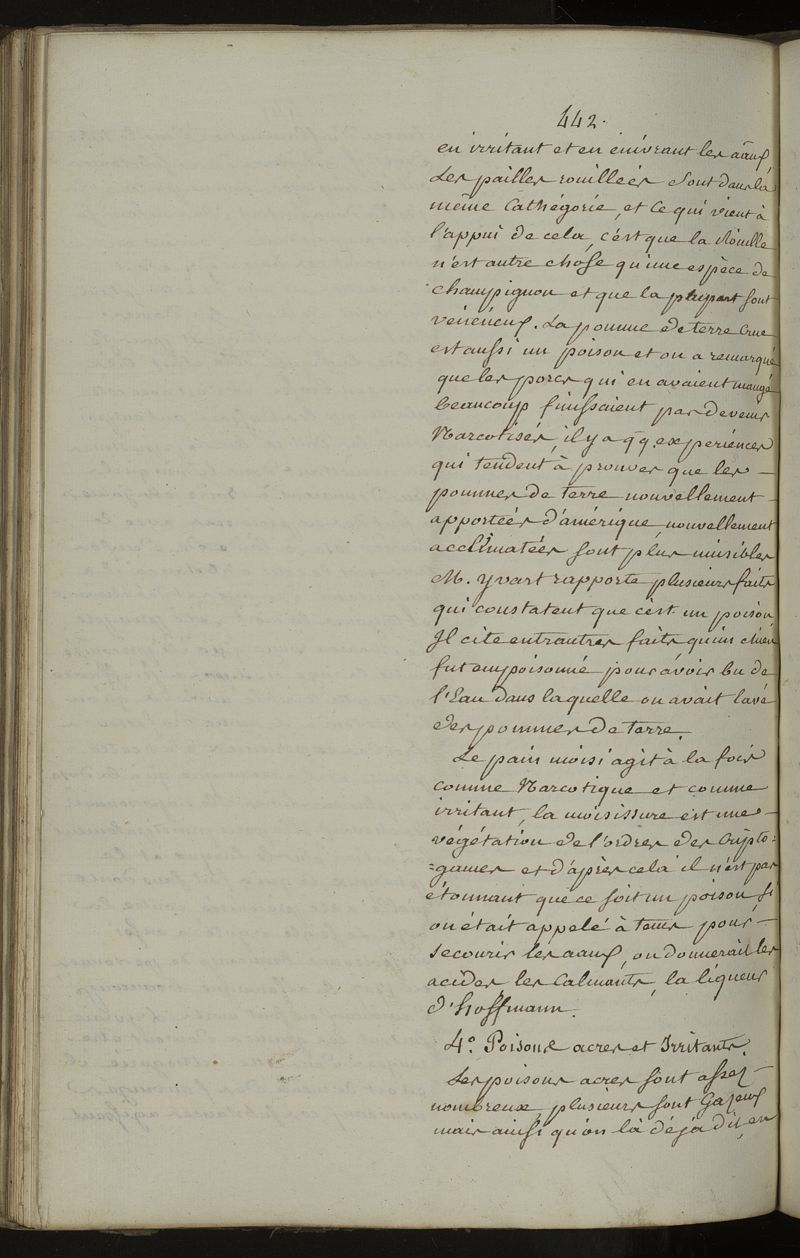 442.
en irritant et en enivrant les aãux,
Les pailles rouillées sont dans la
même Cathégorie, et ce qui vient à
l'appui de cela, c'est que la Rouille
n'est autre chose qu'une espèce de
champignon et que la plupart sont
vénéneux. La pomme de terre crue
est aussi un poison et on a remarqué
que les porcs qui en avaient mangé
beaucoup finissaient par devenir
Narcotisés, il y a qq. expériences
qui tendent à prouver que les —
pommes de terre nouvellement —
apportées d'amérique, nouvellement
acclimatées sont plus nuisibles
M. Yvart rapporte plusieurs faits
qui constatent que c'est un poison,
Il cite entr'autres faits qu'un chien
fut empoisonné pour avoir bu de
l'Eau dans laquelle on avait lavé
des pommes de terre.
Le pain moisi agit à la fois
comme Narcotique et comme
irritant, la moisissure est une —
végétation de l'ordres des Cripto=
=games et d'après cela il n'est pas
étonnant que ce soit un poison. Si
on était appelé à tems pour —
secourir les aaux, on donnerait les
acides, les Calmants, la liqueur
d'hoffmann.
4.° Poisons acres et Irritants.
Les poisons acres sont assez —
nombreux, plusieurs sont Gazeux
mais ainsi qu'on l'a déjà dit, en